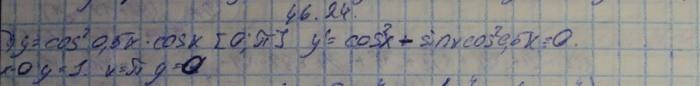 46.24.
y=cos²0,5x·cosx [0;π] y'=cos²x-sinxcos²0,5x=0.
x=0 y=1 x=π y=0